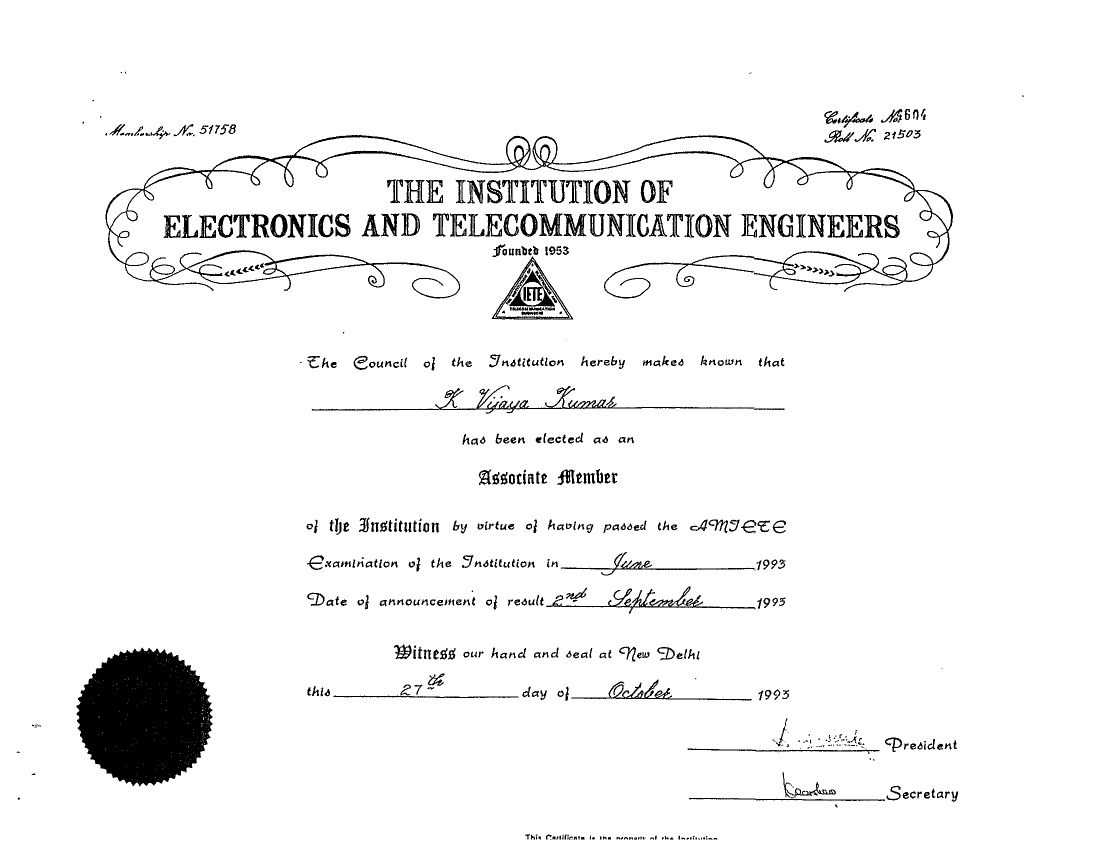 Membership No. 51758
Certificate No.
Roll No. 21503
THE INSTITUTION OF
ELECTRONICS AND TELECOMMUNICATION ENGINEERS
Founded 1953
IETE
TELECOMMUNICATION
The Council of the Institution hereby makes known that
K Vijaya Kumar
has been elected as an
Associate Member
of the Institution by virtue of having passed the AMIETE
Examination of the Institution in June 1993
Date of announcement of result 2nd September 1993
Witness our hand and seal at New Delhi
this 27th day of October 1993
President
Secretary
This Certificate is the property of the Institution